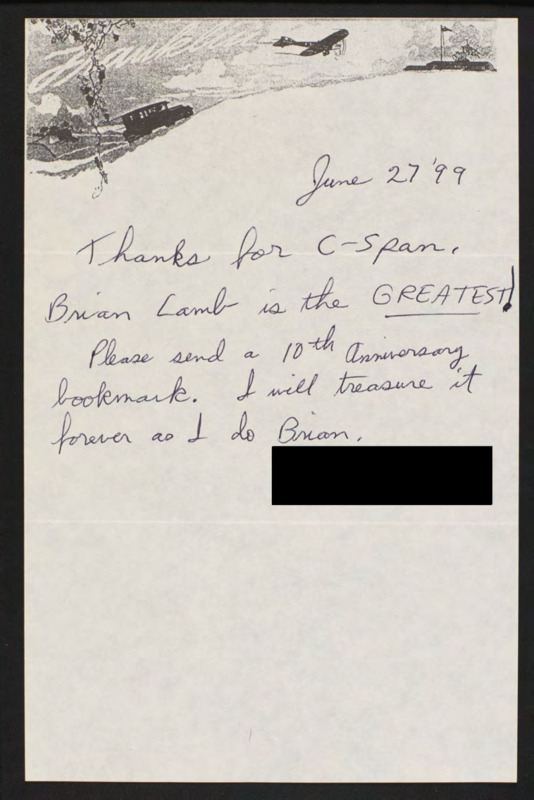 June 27 '99
Thanks for C-Span.
Brian Lamb is the GREATEST!
Please send a 10th Anniversary
bookmark. I will treasure it
forever as I do Brian.